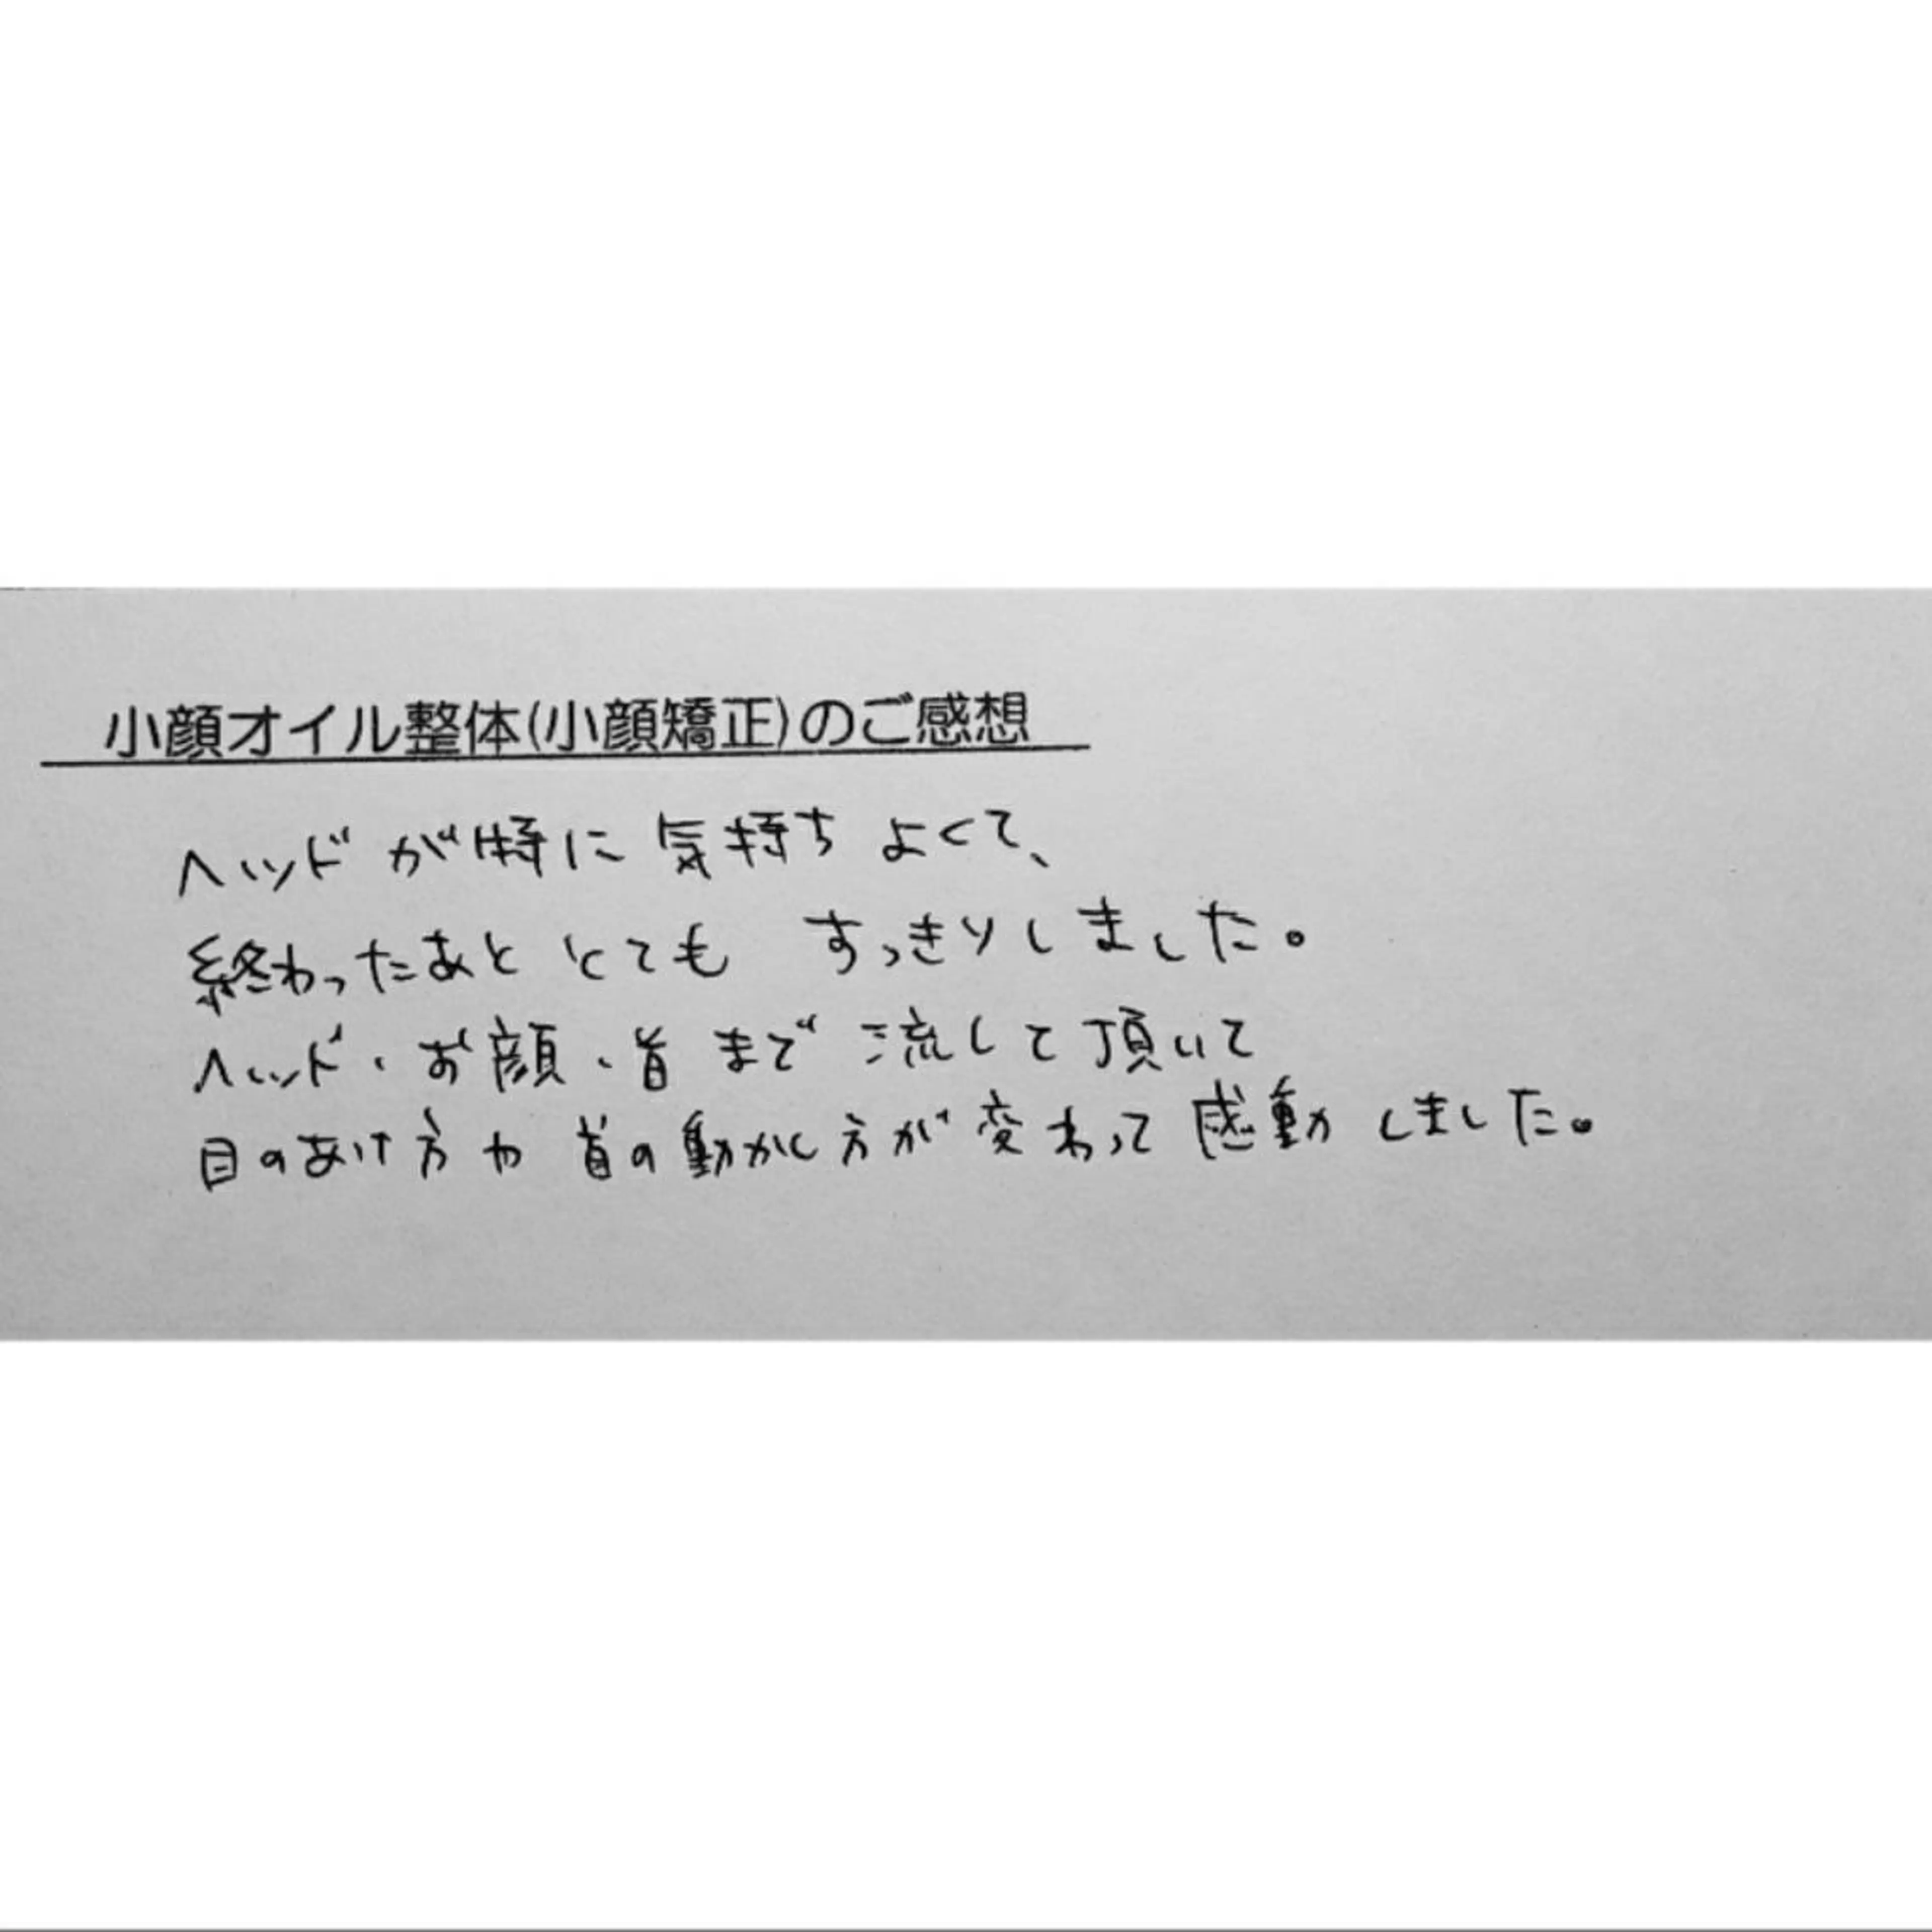 小顔オイル整体(小顔矯正)のご感想
ヘッドが特に気持ちよくて、
終わったあととてもすっきりしました。
ヘッド・お顔・首まで流して頂いて
目のあけ方や首の動かし方が変わって感動しました。